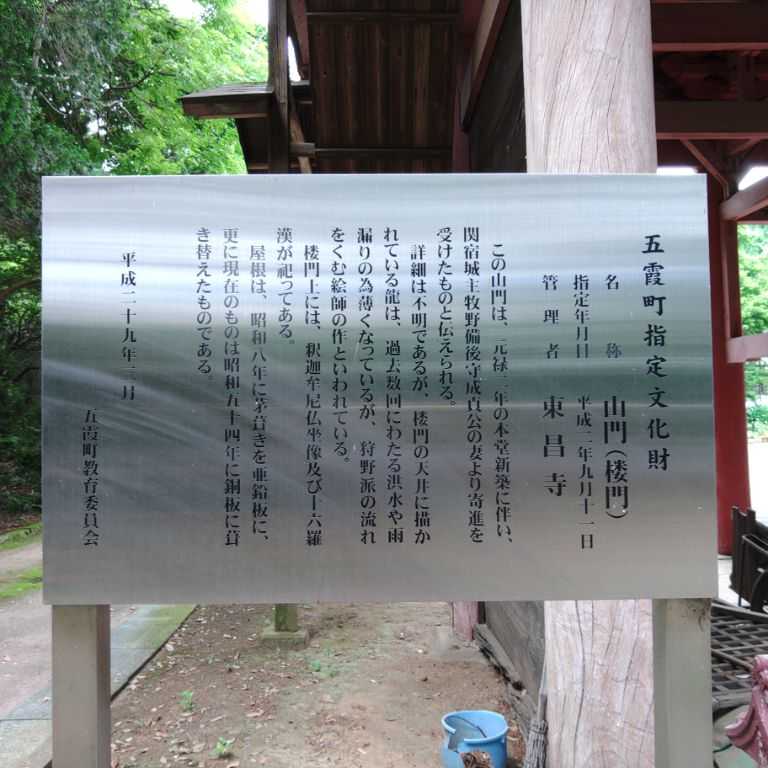 五霞町指定文化財
名称 山門(楼門)
指定年月日 平成二年九月十一日
管理者 東昌寺
この山門は、元禄二年の本堂新築に伴い、
関宿城主牧野備後守成貞公の妻より寄進を
受けたものと伝えられる。
詳細は不明であるが、楼門の天井に描か
れている龍は、過去数回にわたる洪水や雨
漏りの為薄くなっているが、狩野派の流れ
をくむ絵師の作といわれている。
楼門上には、釈迦牟尼仏坐像及び十六羅
漢が祀ってある。
屋根は、昭和八年に茅葺きを亜鉛板に、
更に現在のものは昭和五十四年に銅板に葺
き替えたものである。
平成二十九年三月
五霞町教育委員会